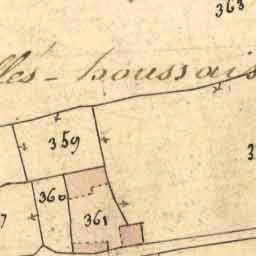 363
lles-houssais
359
360
361